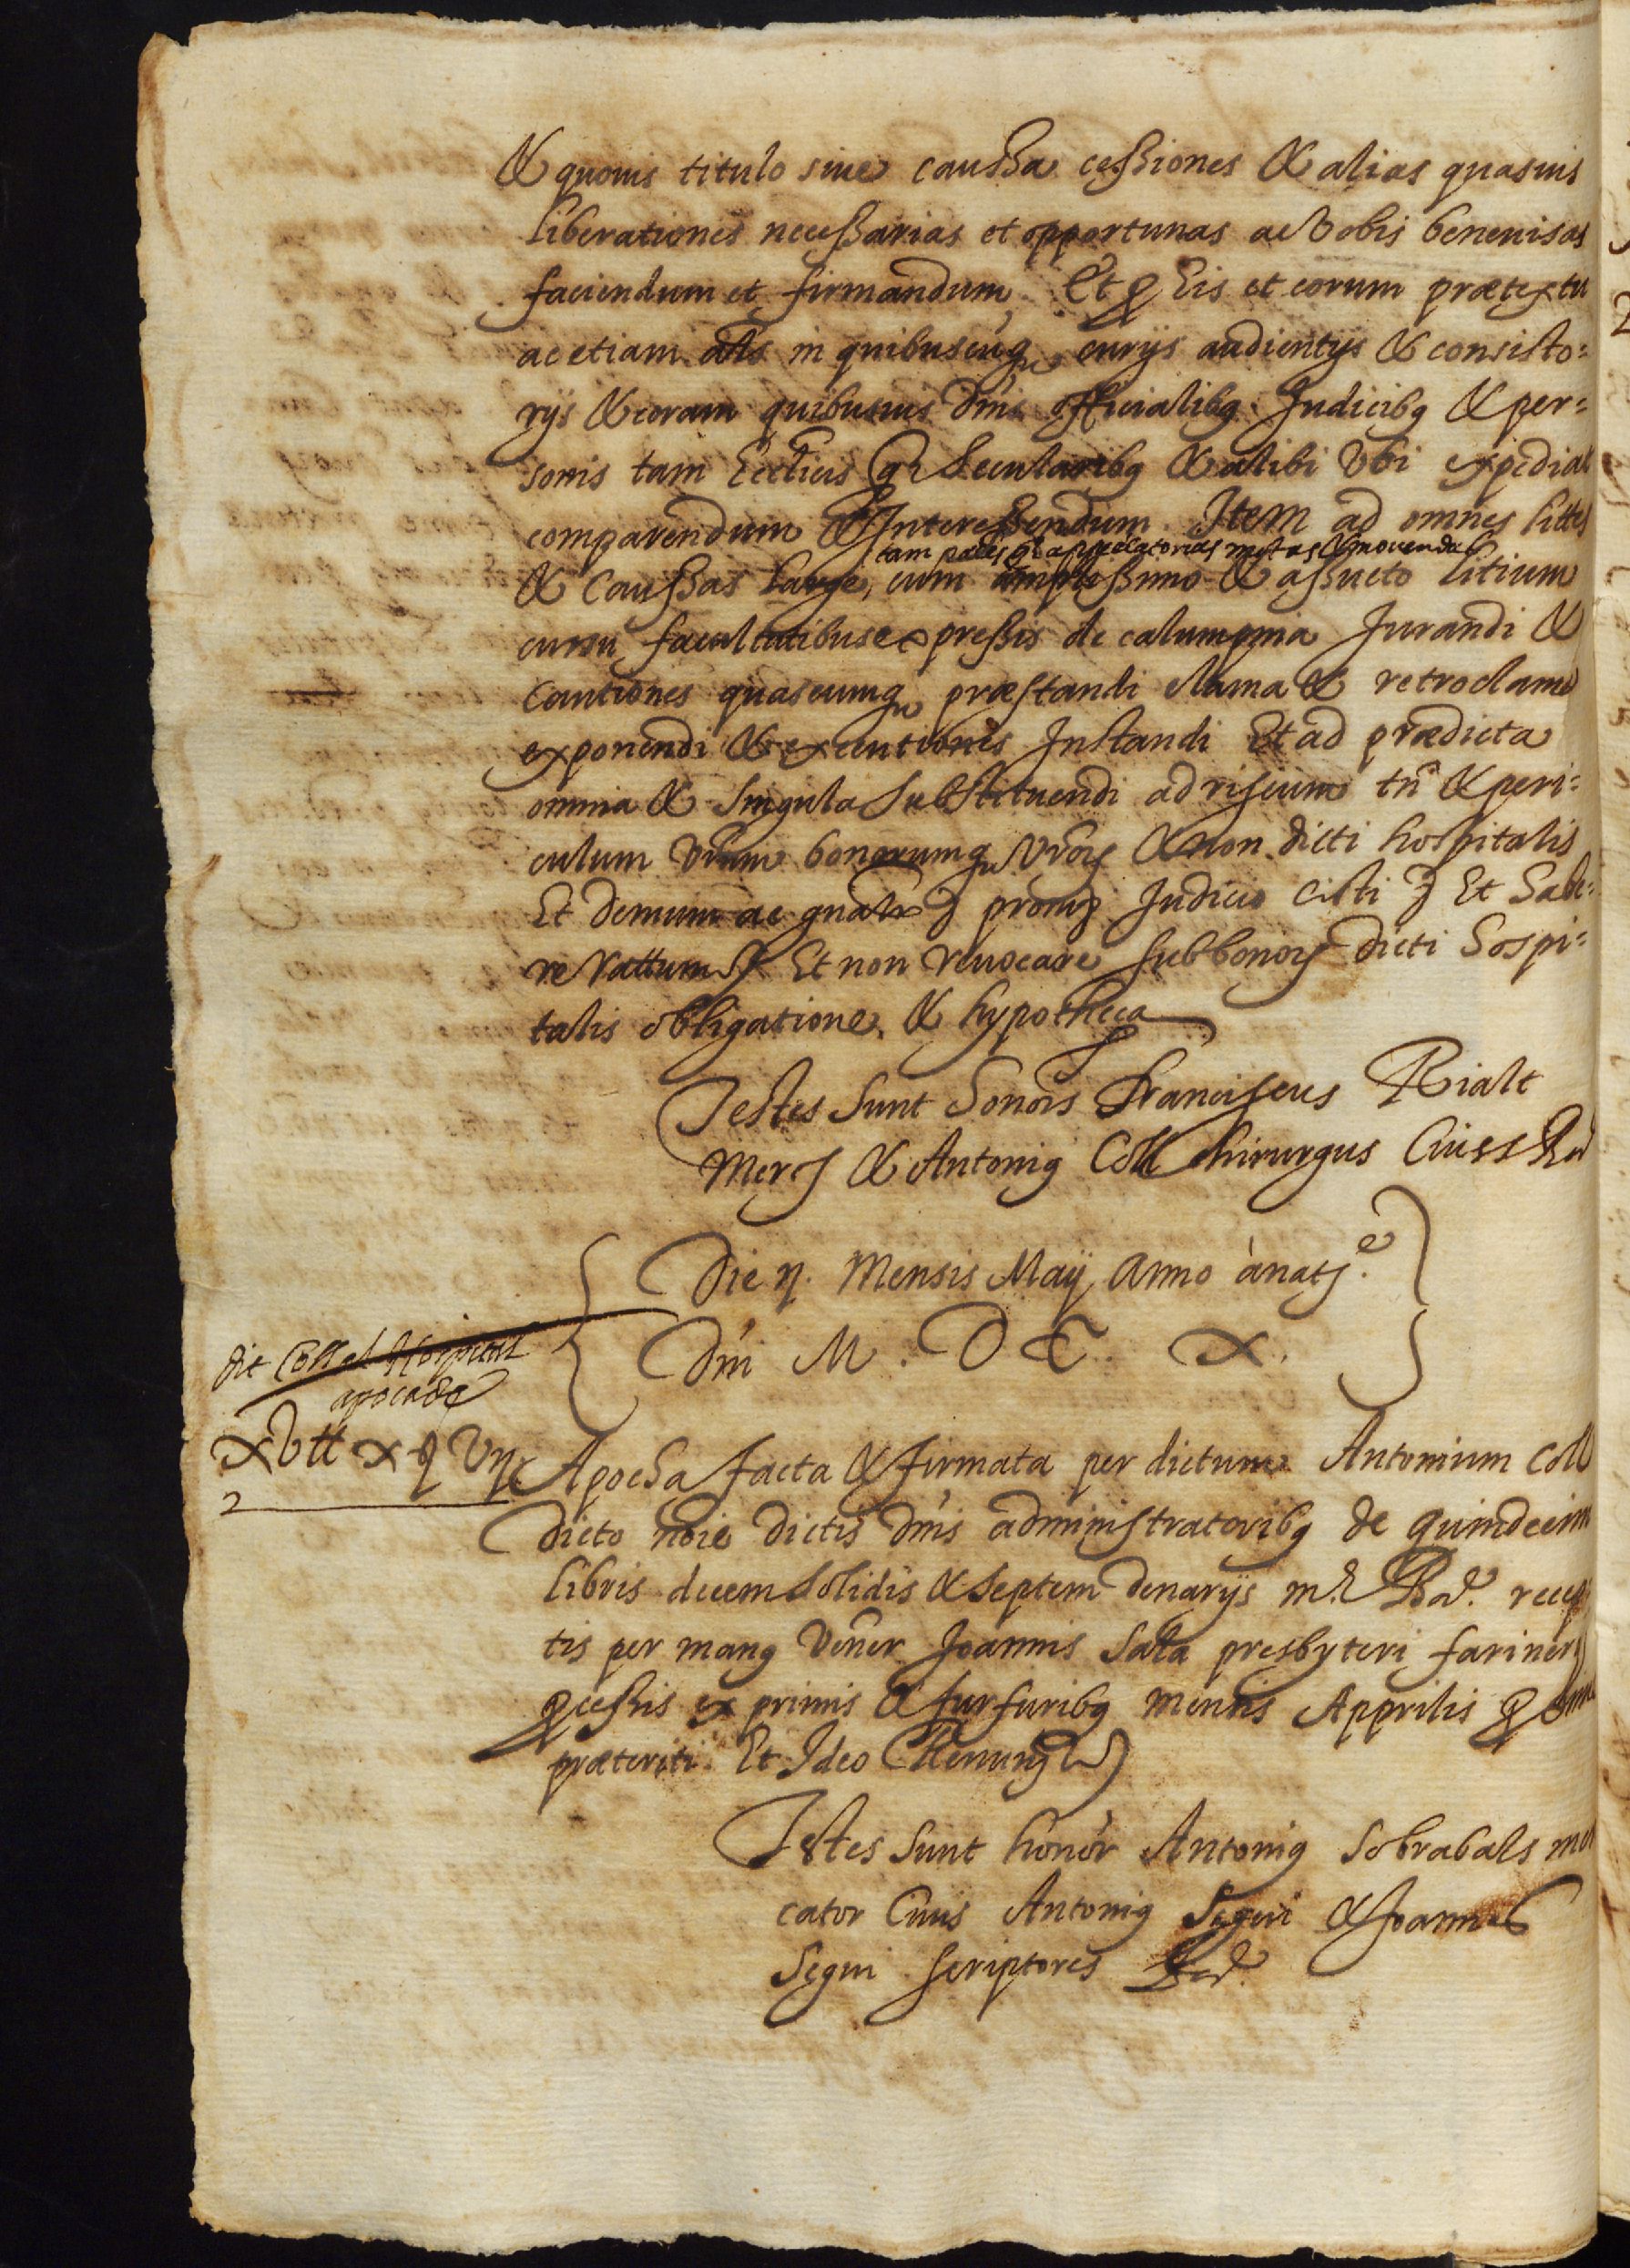 & quouis titulo siue caussa cessiones & alias quasuis
liberationes necessarias et opportunas ac vobis beneuisas
faciendum et firmandum. Et p his et eorum prætextu
ac etiam als in quibuscúq curijs audientijs & consisto=
rijs & coram quibusuis dnis officialibq Judicibq & per=
sonis tam Ecclicis q secularibq & alibi Vbi expediat
comparendum & Interessendum. Item ad omnes littes
tam pntes q appellatorias motas & mouendas
& Caussas large, cum amplissimo & assueto litium
cursu facultatibus expressis de calumpnia Jurandi &
Cautiones quascumq præstandi clama & retroclama
exponendi & executiones Instandi Et ad prædicta
omnia & Singula Substituendi ad riscum tn & peri=
culum vrum bonorumq vror & non dicti hospitalis
Et demum ac gnalr promis Judicio cisti Et Habe=
re rattum Et non reuocare sub bonor dicti Hospi=
talis obligatione & hypotheca
Testes Sunt Honors Franciscus Rialt
Mer & Antoniq Coll Chirurgus Ciues
Die 7. Mensis Maij Anno ànate
Dni M. D C. X.
dit Coll al Hospital
apoca de
XV tt X q Vij
Apocha facta & firmata per dictum Antonium Coll
dicto noie dictis dnis administratoribq de quindecim
libris decem Solidis & septem denarijs m. Ba. recep
tis per manq Vener Joannis Sala presbyteri fariner
pcessis ex primis & furfuribq mensis Apprilis p
præteriti. Et Ideo Renun
Testes Sunt honor Antoniq Sobrabals mer
cator Ciuis Antoniq Segui & Joannes
Segui scriptores Bar.